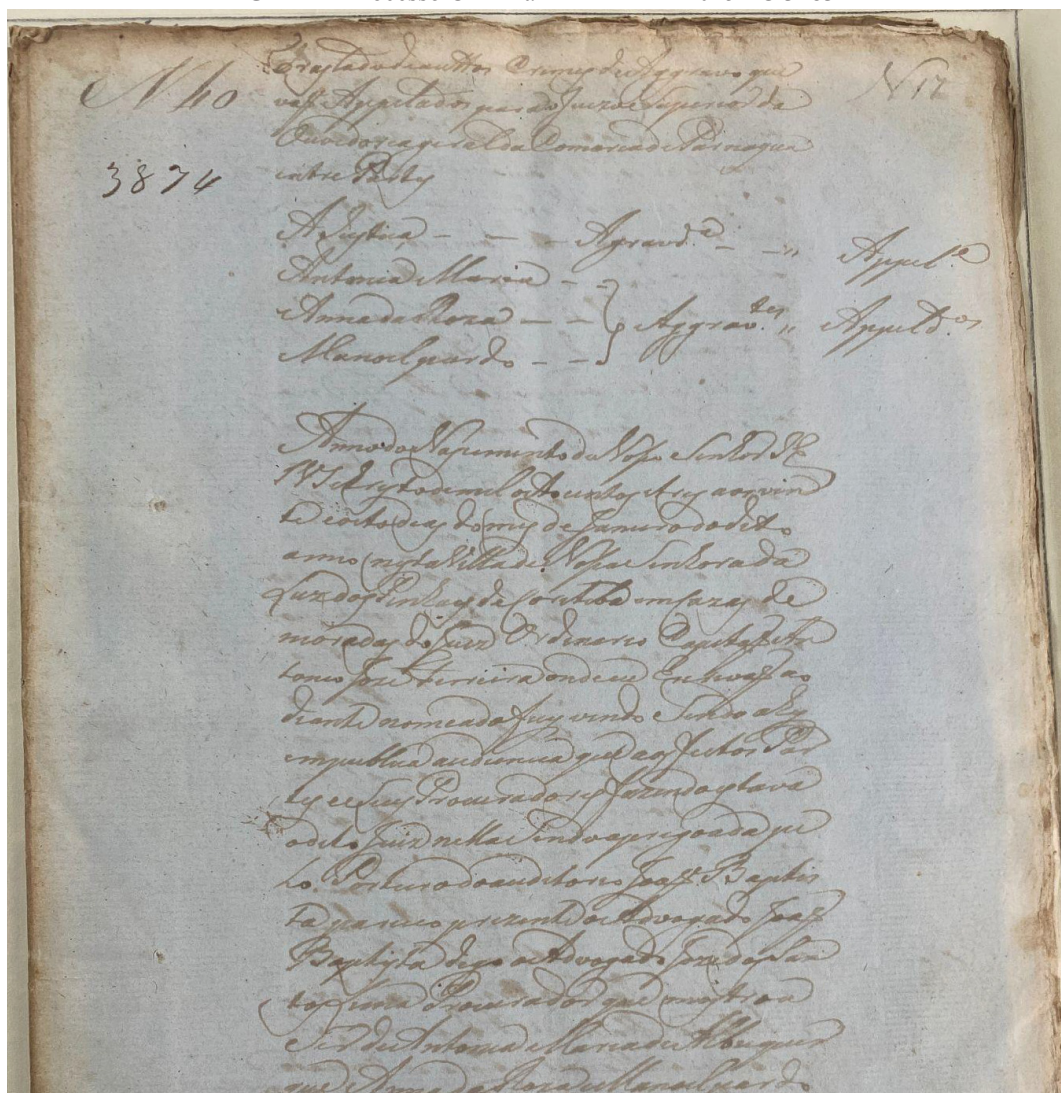 Traslado de auttos Crimes de Aggravo que
N. 40
N 12
vaẽ Appelados para o Juizo Superior da
Ouvedoria geral da Comarca de Parnagua
3874
entre Partes
A Justiça - - - Agravd.ª - - " Appel.e
Antonia Maria - -
Anna da Roza - - } Aggrav.tes " Appeld.os
Manoel pardo - -
Anno do Nascimento de Nosso Senhor
Cristo de mil oito centos e tres aos vin
te e oito dias do mes de Janeiro do dito
anno nesta Villa de Nossa Senhora da
Luz dos Pinhaes da Coritiba em Cazas de
moradas do Juiz Ordinario Capitaõ An
tonio José Ferreira onde eu Escrivaõ ao
diante nomeado fuy vindo e sendo ahy
em publica audiencia que aos feitos Par
tes e seus Procuradores fazendo estava
o dito Juiz nella sendo apregoada pe
lo Porteiro do auditorio Joaõ Baptis
ta pareceo prezente o Advogado Joaõ
Baptista digo o Advogado José dos San
tos Lima Procurador que mostrou
Ser de Antonia Maria de Albuquer
que Anna da Roza e Manoel pardo